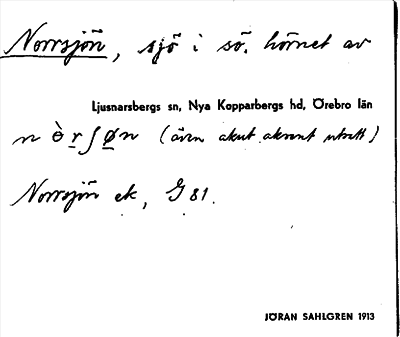 Norrsjön, sjö i sö. hörnet av
Ljusnarsbergs sn, Nya Kopparbergs hd, Örebro län
n ò̤r̲ʃø̲n (även akut akcent utsatt)
Norrsjön ek, G 81.
JÖRAN SAHLGREN 1913